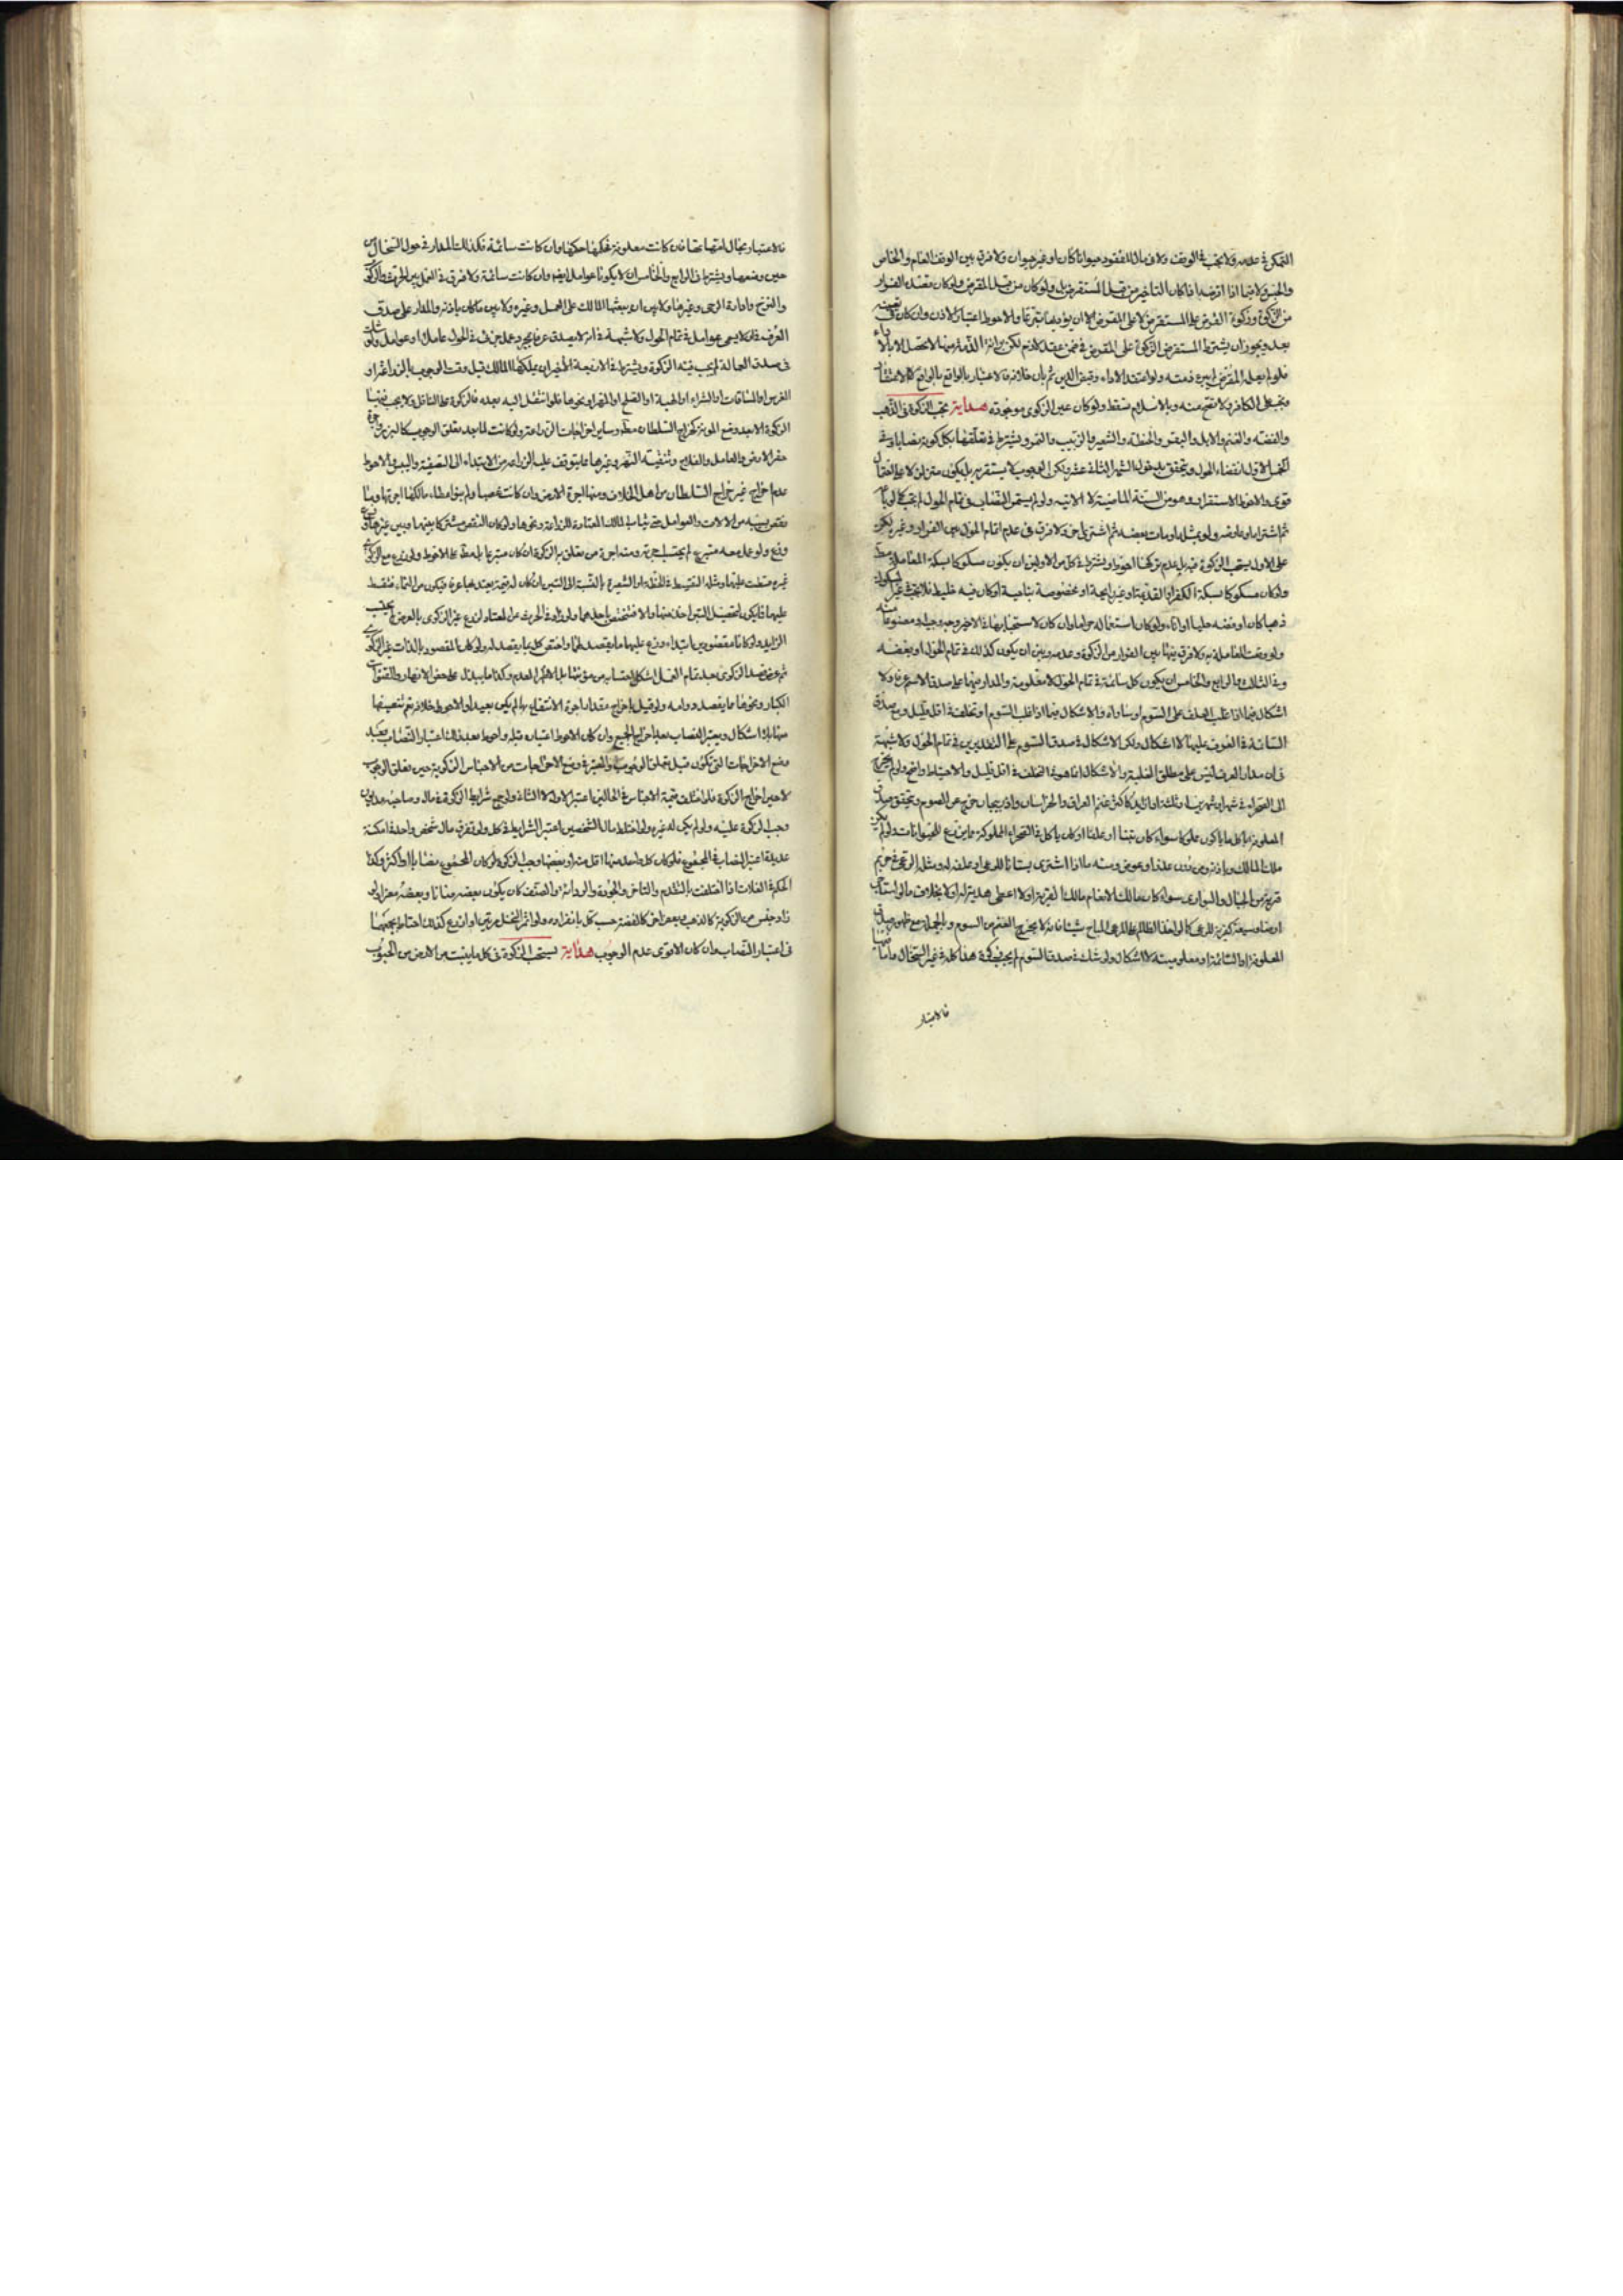 التمكن في عدمه ولا تجب في الوقف ولا في مال المفقود حيوانا كان او غير حيوان ولا فرق بين الوقف العام والخاص
والحبس ولا فيما اذا اقرضه اذا كان التاخير من قبل المستقرض بل ولو كان من قبل المقرض ولو كان بقصد الفرار
من الزكوة وزكوة القرض على المستقرض لا على المقرض الا ان يؤديها تبرعا والاحوط اعتبار الاذن وان كان
بعد ويجوز ان يشترط المستقرض الزكوة على المقرض في ضمن عقد لازم لكن برائة الذمة منها لا تحصل الا بالاداء
فلو لم يعمل المقرض لم تبرء ذمته ولو اعتقد الاداء وقبض الدين ثم بان خلافه فالاعتبار بالواقع
وتجب على الكافر ولا تصح منه وبالاسلام تسقط ولو كان عين الزكوى موجودة هداية تجب الزكوة في الذهب
والفضة والغنم والابل والبقر والحنطة والشعير والزبيب والتمر ويشترط في تعلقها بكل كونه نصابا وفي
الخمس الاول انقضاء الحول ويتحقق بدخول الشهر الثاني عشر ولكن الوجوب لا يستقر به بل يكون متزلزلا
قوى والاحوط الاستقرار وهو من السنة الماضية لا الاتية ولو لم يستمر النصاب في تمام الحول لم تجب كما لو باعه
ثم اشتراه او عاوضه ولو بمثله او مات بعضه ثم اشترى اخر ولا فرق في عدم اتمام الحول بين الفرار وغيره لكن
على الاول يستحب الزكوة فيه بل عدم تركها احوط ويشترط في كل من الاولين ان يكون مسكوكا بسكة المعاملة
ولو كان مسكوكا بسكة الكفر او القديمة او غير رايجة او مخصوصة بناحية او كان فيه خليط فلا تجب في غير المسكوك
ذهبا كان او فضة حليا او اناء ولو كان استعماله حراما وان كان لاستحبابها في الاخير وجه
ولو وقعت المعاملة به ولا فرق فيها بين الفرار من الزكوة وعدمه وبين ان يكون كذلك في تمام الحول او بعضه
وفي الثالث والرابع والخامس ان يكون كل سائمة في تمام الحول لا معلوفة والمدار فيهما على صدق الاسم عرفا ولا
اشكال فيما اذا غلب العلف على السوم او ساواه والاشكال فيما اذا غلب السوم او تخلفه في اقل قليل
السائمة في العرف عليها لا اشكال ولكن الاشكال في صدق السوم على التقديرين في تمام الحول ولا شبهة
في ان مدار العرف ليس على مطلق الغلبة والاشكال انما هو في التخلف في اقل قليل والاحتياط واضح ولو لم يخرج
الى الصحراء في شهر او شهرين او ثلثة او ازيد كاكثر غنم العراق والخراسان واذربيجان خرج عن السوم
المعلوفة باكل ما ياكون علوفا سواء كان تبنا او علفا او كان ياكل في الصحراء المملوكة ولو لم يكن
ملك المالك وباذنه ومن دون علف او عوض ومنه ما اذا اشترى بستانا للمرعى او علفه
قريته من الجبال والبرارى سواء كان مالك الانعام مالك القرية او لا اعطى هدية له او لا بخلاف ما لو استاجر
ارضا وسيعة كثيرة للمرعى كما لو اخذ الظالم على المرعى المباح شيئا فانه لا يخرج الغنم من السوم وبالجملة مع ظهور صدق
المعلوفة او السائمة او معلوميته لا اشكال ولو شك في صدق السوم لم يجب زكوة هذا كله في غير السخال واما فيها
فالاعتبار
فالاعتبار بحال امهاتها فان كانت معلوفة فحكمها حكمها وان كانت سائمة فكذلك المدار في حول السخال من
حين وضعها ويشترط في الرابع والخامس ان لا يكونا عوامل ايضا وان كانت سائمة ولا فرق في العمل بين الحرث
والنزح وادارة الرحى وغيرها ولا بين ان يبعثها المالك على العمل وغيره ولا بين ما كان باذنه والمدار على صدق
العرف فان لا يسمى عوامل في تمام الحول ولا شبهة في انه لا يصدق عرفا بمجرد عمل جزئى في الحول عاملة او عوامل ولو شك
في صدق العمالة لم يجب فيه الزكوة ويشترط في الاربعة الاخيرة ان يملكها المالك قبل وقت الوجوب بالزراعة او
الغرس او المساقات او الشراء او الهبة او الصلح او المهر او نحوها فلو انتقل اليه بعده فالزكوة على الناقل ولا يجب فيها
الزكوة الا بعد وضع المونة كخراج السلطان مطلقا وساير اخراجات الزراعة ولو كانت لما بعد تعلق الوجوب كالبذر
حفر الارض والعامل والفلاح وتنقية النهر وغيرها مما يتوقف عليه الزراعة من الابتداء الى التصفية والاحوط
عدم اخراج غير خراج السلطان من اهل الخلاف ومنها اجرة الارض وان كانت غصبا ولم ينو اعطاء مالكها اجرتها وما
نقص بسببه من الالات والعوامل حتى ثياب المالك المعتادة للزراعة ونحوها ولو كان النقص مشتركا بينها وبين غيرها
وزع ولو عمل معه متبرع لم يحتسب اجرته ومنه اجرة من تعلق به الزكوة ان كان متبرعا بل مطلقا على الاحوط
غيره قسطت عليهما ومثله التقسيط في الحنطة او الشعيرة بالنسبة الى التبن ان كان له قيمة يعتد بها عرفا فيكون من النماء فقسط
عليهما
الزايد ولو كانا مقصودين ابتداء وزع عليهما ما يقصد لهما واختص كل بما يقصد له ولو كان المقصود بالذات غير الزكوى
ثم عرض قصد الزكوى بعد تمام العمل اشكل احتسابه من مؤنتها بل الاظهر العدم وكذا ما يبذل على حفر الانهار والقنوات
الكبار ونحوها مما يقصد دوامه ولو قيل باخراج مقدار اجرة الانتفاع بها لم يكن بعيدا والاحوط خلافه نعم تنقيتها
منها بلا اشكال ويعتبر النصاب بعد اخراج الجميع وان كان الاحوط اعتباره قبله واحوط بعد ذلك اعتبار النصاب بعد
وضع الاخراجات التي تكون قبل تعلق الوجوب والمعتبر في وضع الاخراجات من الاجناس الزكوية حين تعلق الوجوب
لا حين اخراج الزكوة فلو اختلف قيمة الاجناس في الحالين اعتبر الاول لا الثاني ولو اجتمع شرايط الزكوة في مال وصاحبه مديون
وجب الزكوة عليه ولو لم يكن له غيره ولو اختلط مال الشخصين اعتبر الشرايط في كل ولو تفرق مال شخص واحد في امكنة
عديدة اعتبر النصاب في المجموع فلو كان كل واحد منها اقل منه او بعضها وجب الزكوة لو كان المجموع نصابا او اكثر وكذا
الحكم في الغلات اذا اختلفت بالتقدم والتاخر والجودة والردائة او الصنف كان يكون بعضه ضانا وبعضه معزا ولو
زاد جنس من الزكوية كالذهب وبعض اخر كالفضة حسب كل بانفراده ولو اثمر النخل مرتين او ازرع كذلك احتاط بجمعهما
في اعتبار النصاب وان كان الاقوى عدم الوجوب هداية يستحب الزكوة في كل ما ينبت من الارض من الحبوب